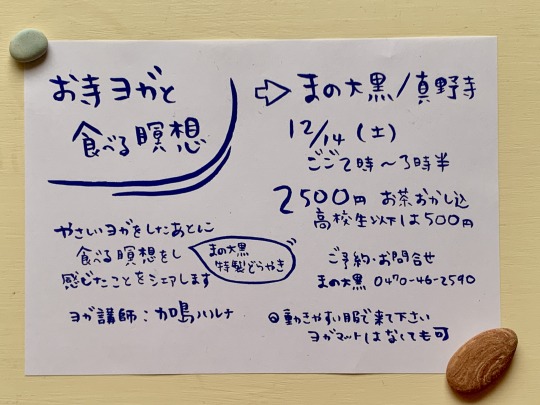 お寺ヨガと
食べる瞑想
⇨ まの大黒/真野寺
12/14(土)
ごご2時～3時半
2500円 お茶おかし込
高校生以下は500円
やさいヨガをしたあとに
食べる瞑想をし
感じたことをシェアします
まの大黒
特製どらやき
ヨガ講師:加嶋ハルナ
ご予約・お問合せ
まの大黒 0470-46-2590
◎動きやすい服で来て下さい
ヨガマットはなくても可